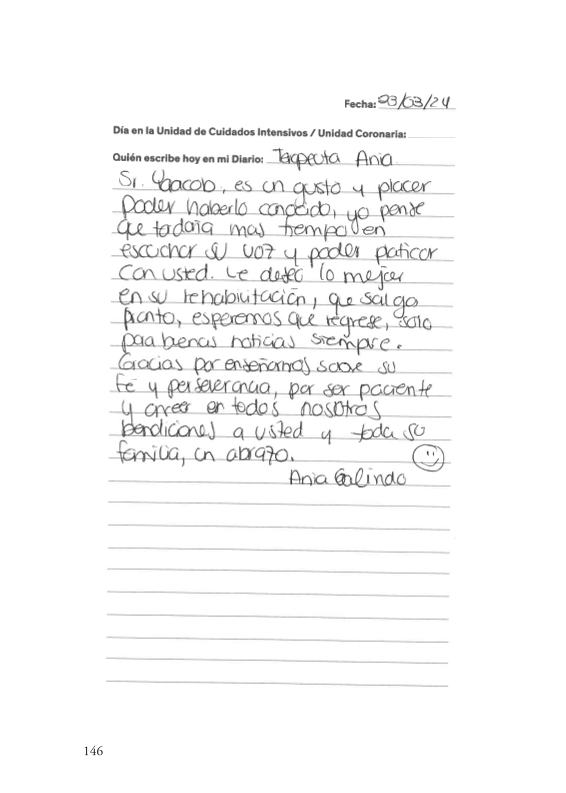 Fecha: 23/03/24
Día en la Unidad de Cuidados Intensivos / Unidad Coronaria:
Quién escribe hoy en mi Diario: Terapeuta Ania
Sr. Yaacob, es un gusto y placer
poder haberlo conocido, yo pense
que todavia mas tiempo en
escuchar su voz y poder platicar
con usted. Le deseo lo mejor
en su rehabilitación, que salga
pronto, esperemos que regrese, solo
para buenas noticias siempre.
Gracias por enseñarnos sobre su
Fé y perseverancia, por ser paciente
y creer en todos nosotros
bendiciones a usted y toda su
familia, un abrazo.
Ania Galindo
146